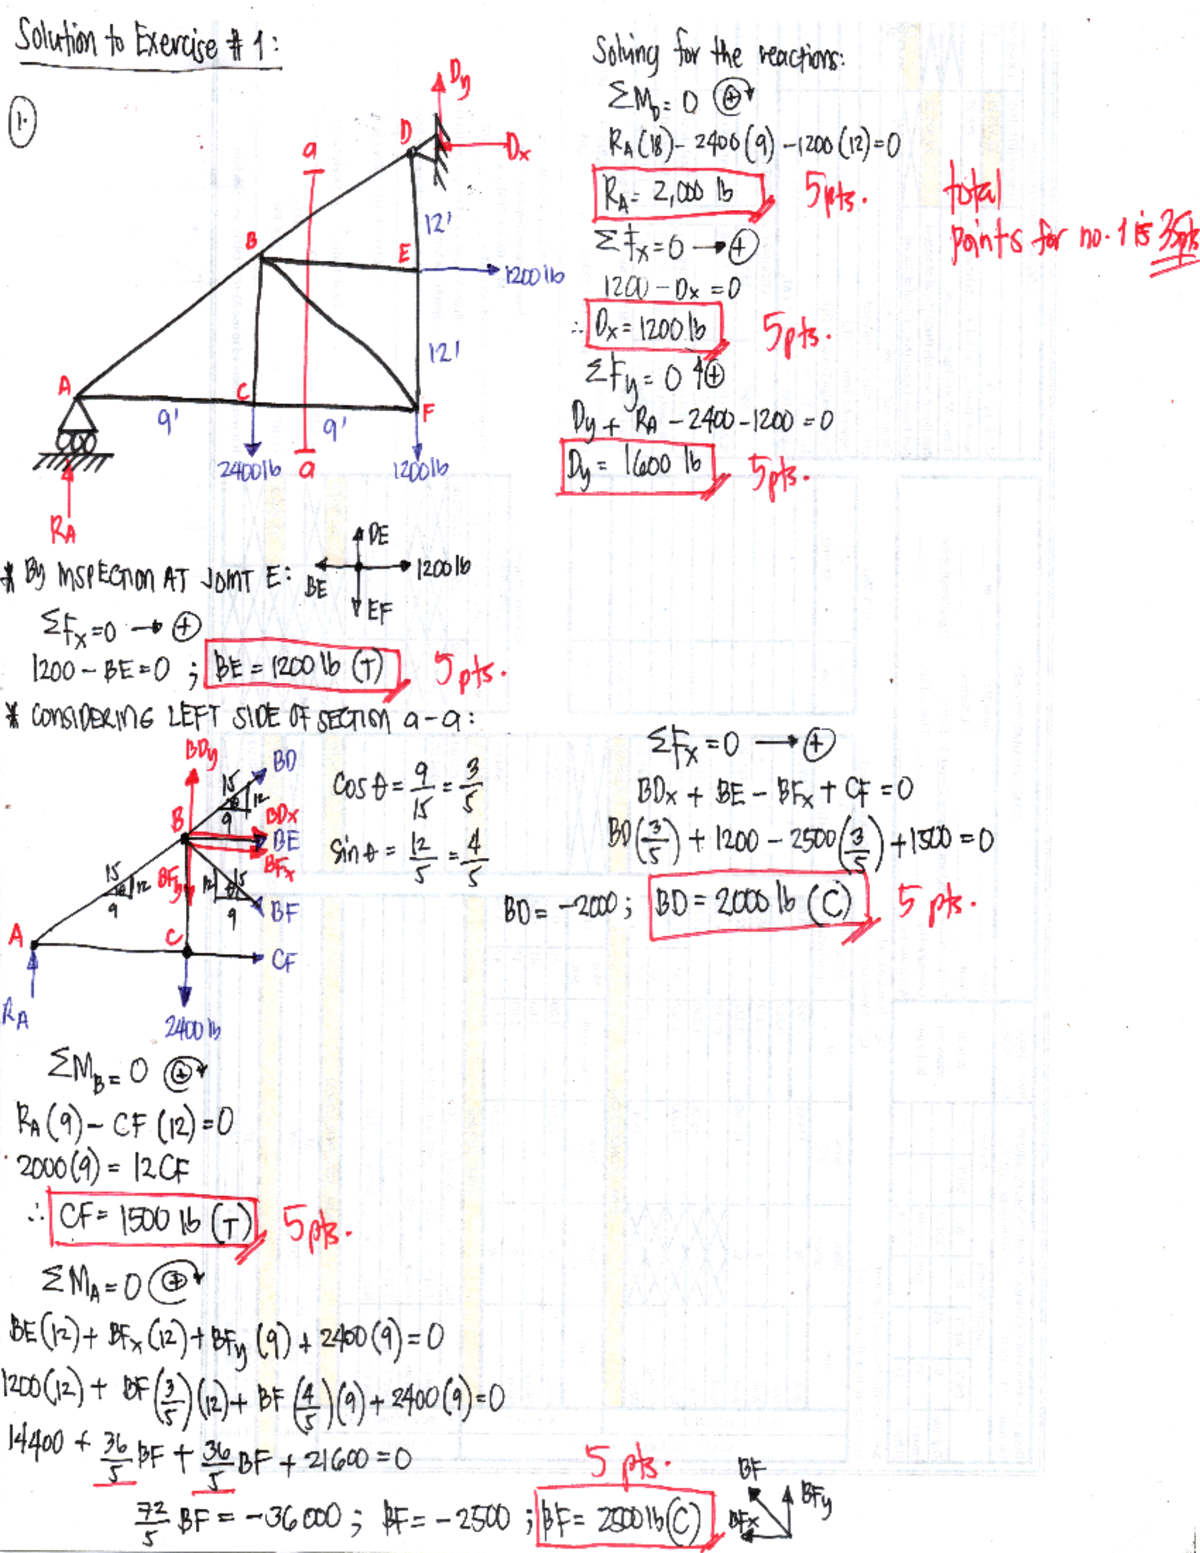 Solution to Exercise # 1:
1.
Dy
D
Dx
a
12'
B
E
1200 lb
12'
A
C
F
9'
9'
2400 lb
a
1200 lb
RA
Solving for the reactions:
ΣMD = 0 (+)
RA(18) - 2400(9) - 1200(12) = 0
RA = 2,000 lb 5pts.
total
points for no. 1 is 35pts
ΣFx = 0 → (+)
1200 - Dx = 0
∴ Dx = 1200 lb 5pts.
ΣFy = 0 ↑(+)
Dy + RA - 2400 - 1200 = 0
Dy = 1600 lb 5pts.
* By INSPECTION AT JOINT E:
DE
BE
1200 lb
EF
ΣFx = 0 → (+)
1200 - BE = 0 ; BE = 1200 lb (T) 5 pts.
* CONSIDERING LEFT SIDE OF SECTION a-a:
BDy
BD
15
θ
12
9
B
BDx
BE
BFx
15
θ
12
9
BFy
12
15
θ
9
BF
A
C
CF
RA
2400 lb
Cos θ = 9/15 = 3/5
Sin θ = 12/5 = 4/5
ΣFx = 0 → (+)
BDx + BE - BFx + CF = 0
BD(3/5) + 1200 - 2500(3/5) + 1500 = 0
BD = -2000 ; BD = 2000 lb (C) 5 pts.
ΣMB = 0 (+)
RA(9) - CF(12) = 0
2000(9) = 12CF
∴ CF = 1500 lb (T) 5pts.
ΣMA = 0 (+)
BE(12) + BFx(12) + BFy(9) + 2400(9) = 0
1200(12) + BF(3/5)(12) + BF(4/5)(9) + 2400(9) = 0
14400 + 36/5 BF + 36/5 BF + 21600 = 0
5 pts.
72/5 BF = -36000 ; BF = -2500 ; BF = 2500 lb (C)
BF
BFy
BFx